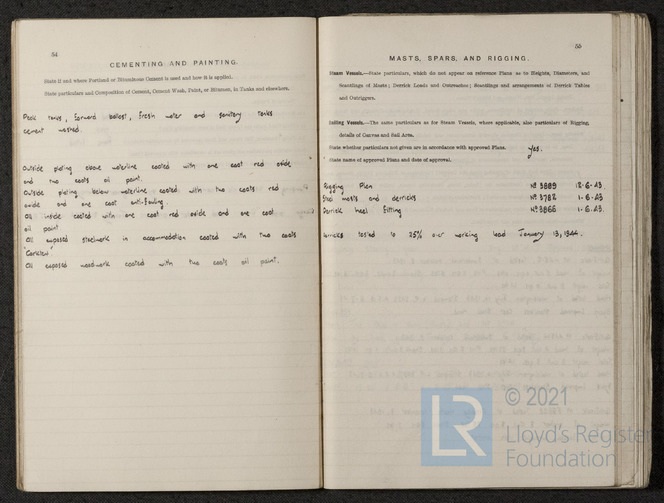 54
CEMENTING AND PAINTING.
State if and where Portland or Bituminous Cement is used and how it is applied.
State particulars and Composition of Cement, Cement Wash, Paint, or Bitumen, in Tanks and elsewhere.
Peak tanks, forward ballast, fresh water and sanitary tanks
cement washed.
Outside plating above waterline coated with one coat red oxide
and two coats oil paint.
Outside plating below waterline coated with two coats red
oxide and one coat anti-fouling.
All inside coated with one coat red oxide and one coat
oil paint
All exposed steelwork in accommodation coated with two coats
All exposed woodwork coated with two coats oil paint.
55
MASTS, SPARS, AND RIGGING.
Steam Vessels.—State particulars, which do not appear on reference Plans as to Heights, Diameters, and
Scantlings of Masts; Derrick Loads and Outreaches; Scantlings and arrangements of Derrick Tables
and Outriggers.
Sailing Vessels.—The same particulars as for Steam Vessels, where applicable, also particulars of Rigging,
details of Canvas and Sail Area.
State whether particulars not given are in accordance with approved Plans. Yes.
State name of approved Plans and date of approval.
Rigging Plan Nº 3889 12·6·43.
Steel masts and derricks Nº 3782 1·6·43.
Derrick heel fitting Nº 3866 1·6·43.
Derricks tested to 25% over working load January 13, 1944.
© 2021
LR
Lloyd's Register
Foundation